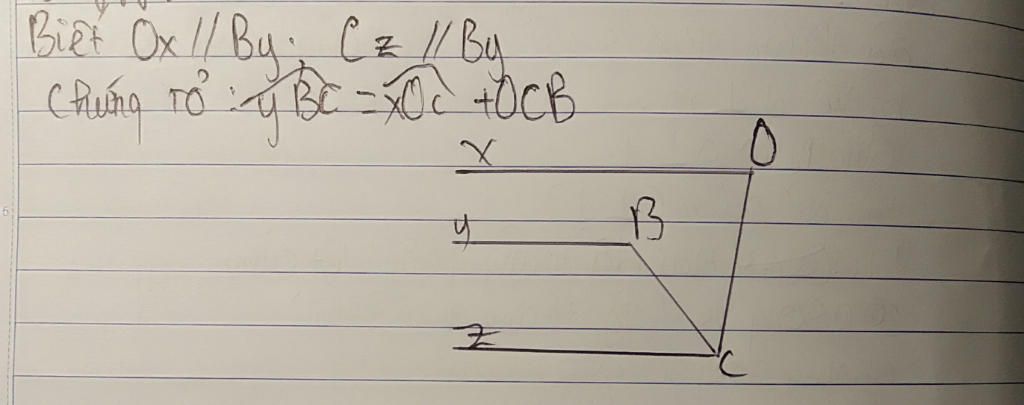 Biết Ox // By. Cz // By
Chứng rỏ: yBC = xOc + OCB
x
O
y
B
z
C